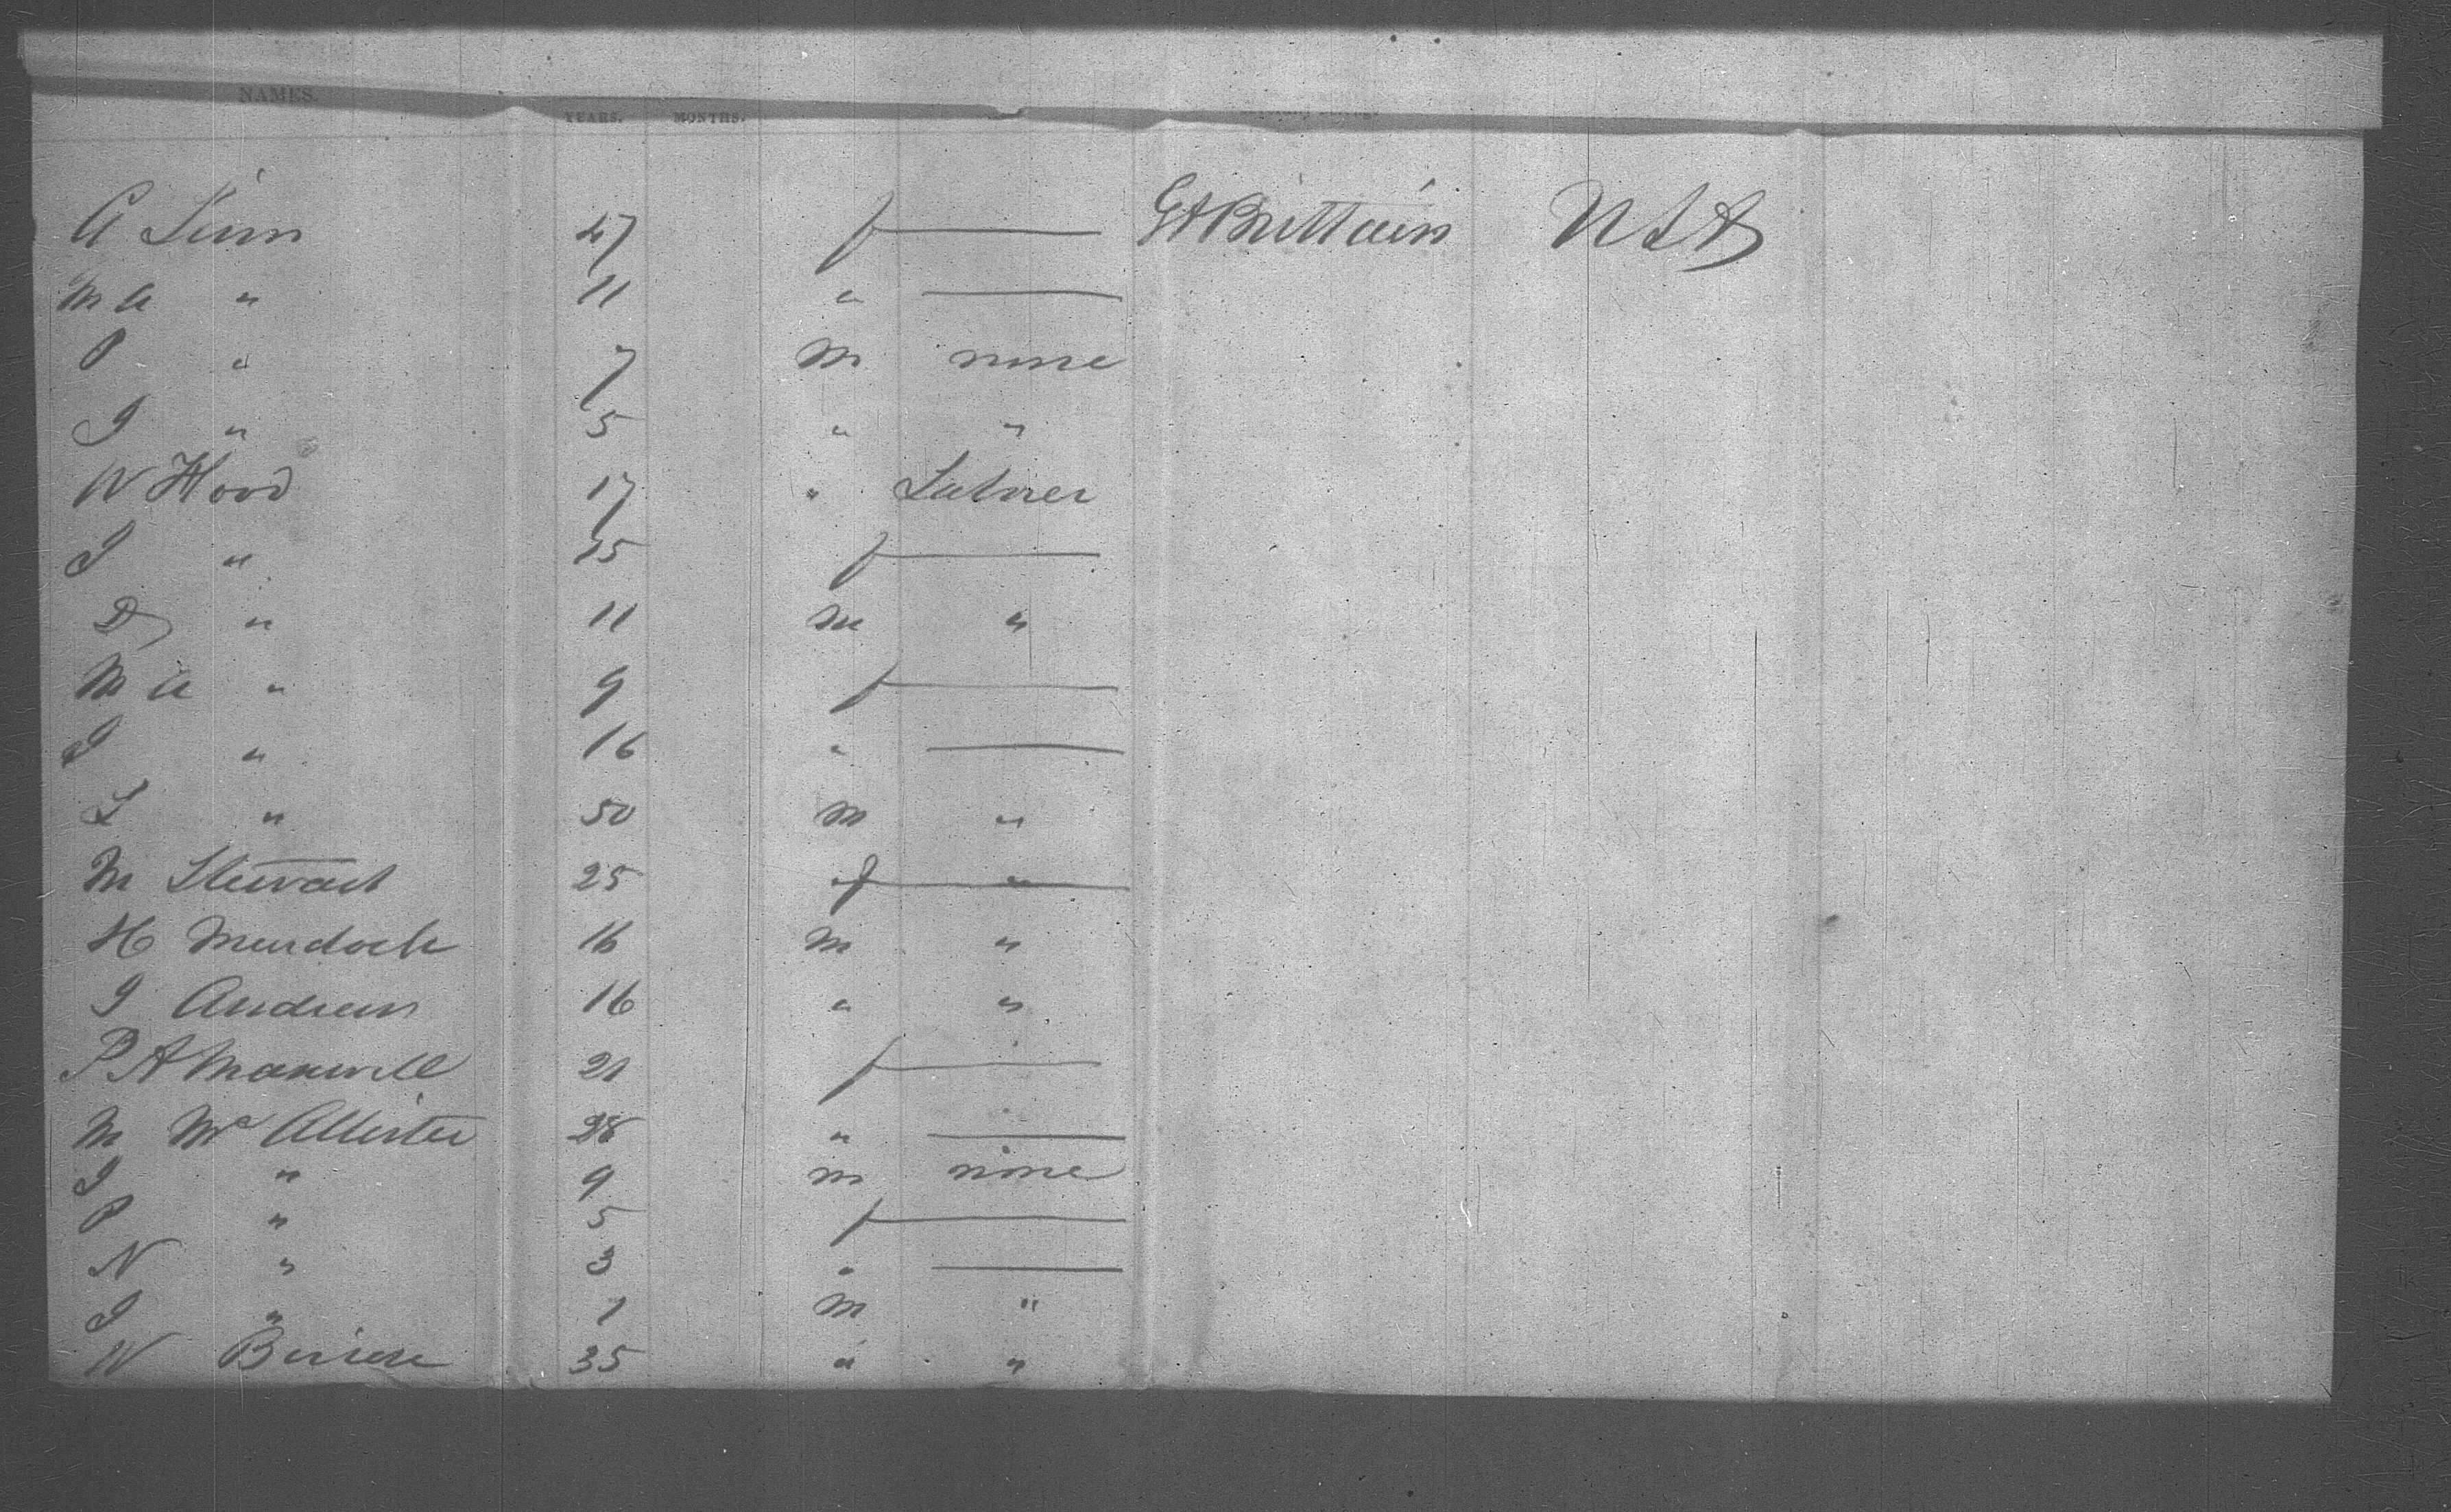 NAMES. YEARS. MONTHS.
A 47 f — Gt Brittain USA
M A " 11 " —
P " 7 M none
J " 5 " "
W Hood 17 " Labrer
J " 15 f —
D " 11 M "
M A " 9 f —
J " 16 " —
L " 50 M "
M Stewart 25 f "
H Murdoch 16 M "
J Andrew 16 " "
P A Maxwell 21 f —
M McAllister 28 " —
J " 9 M none
P " 5 f —
N " 3 " —
J " 1 M "
W 35 " "